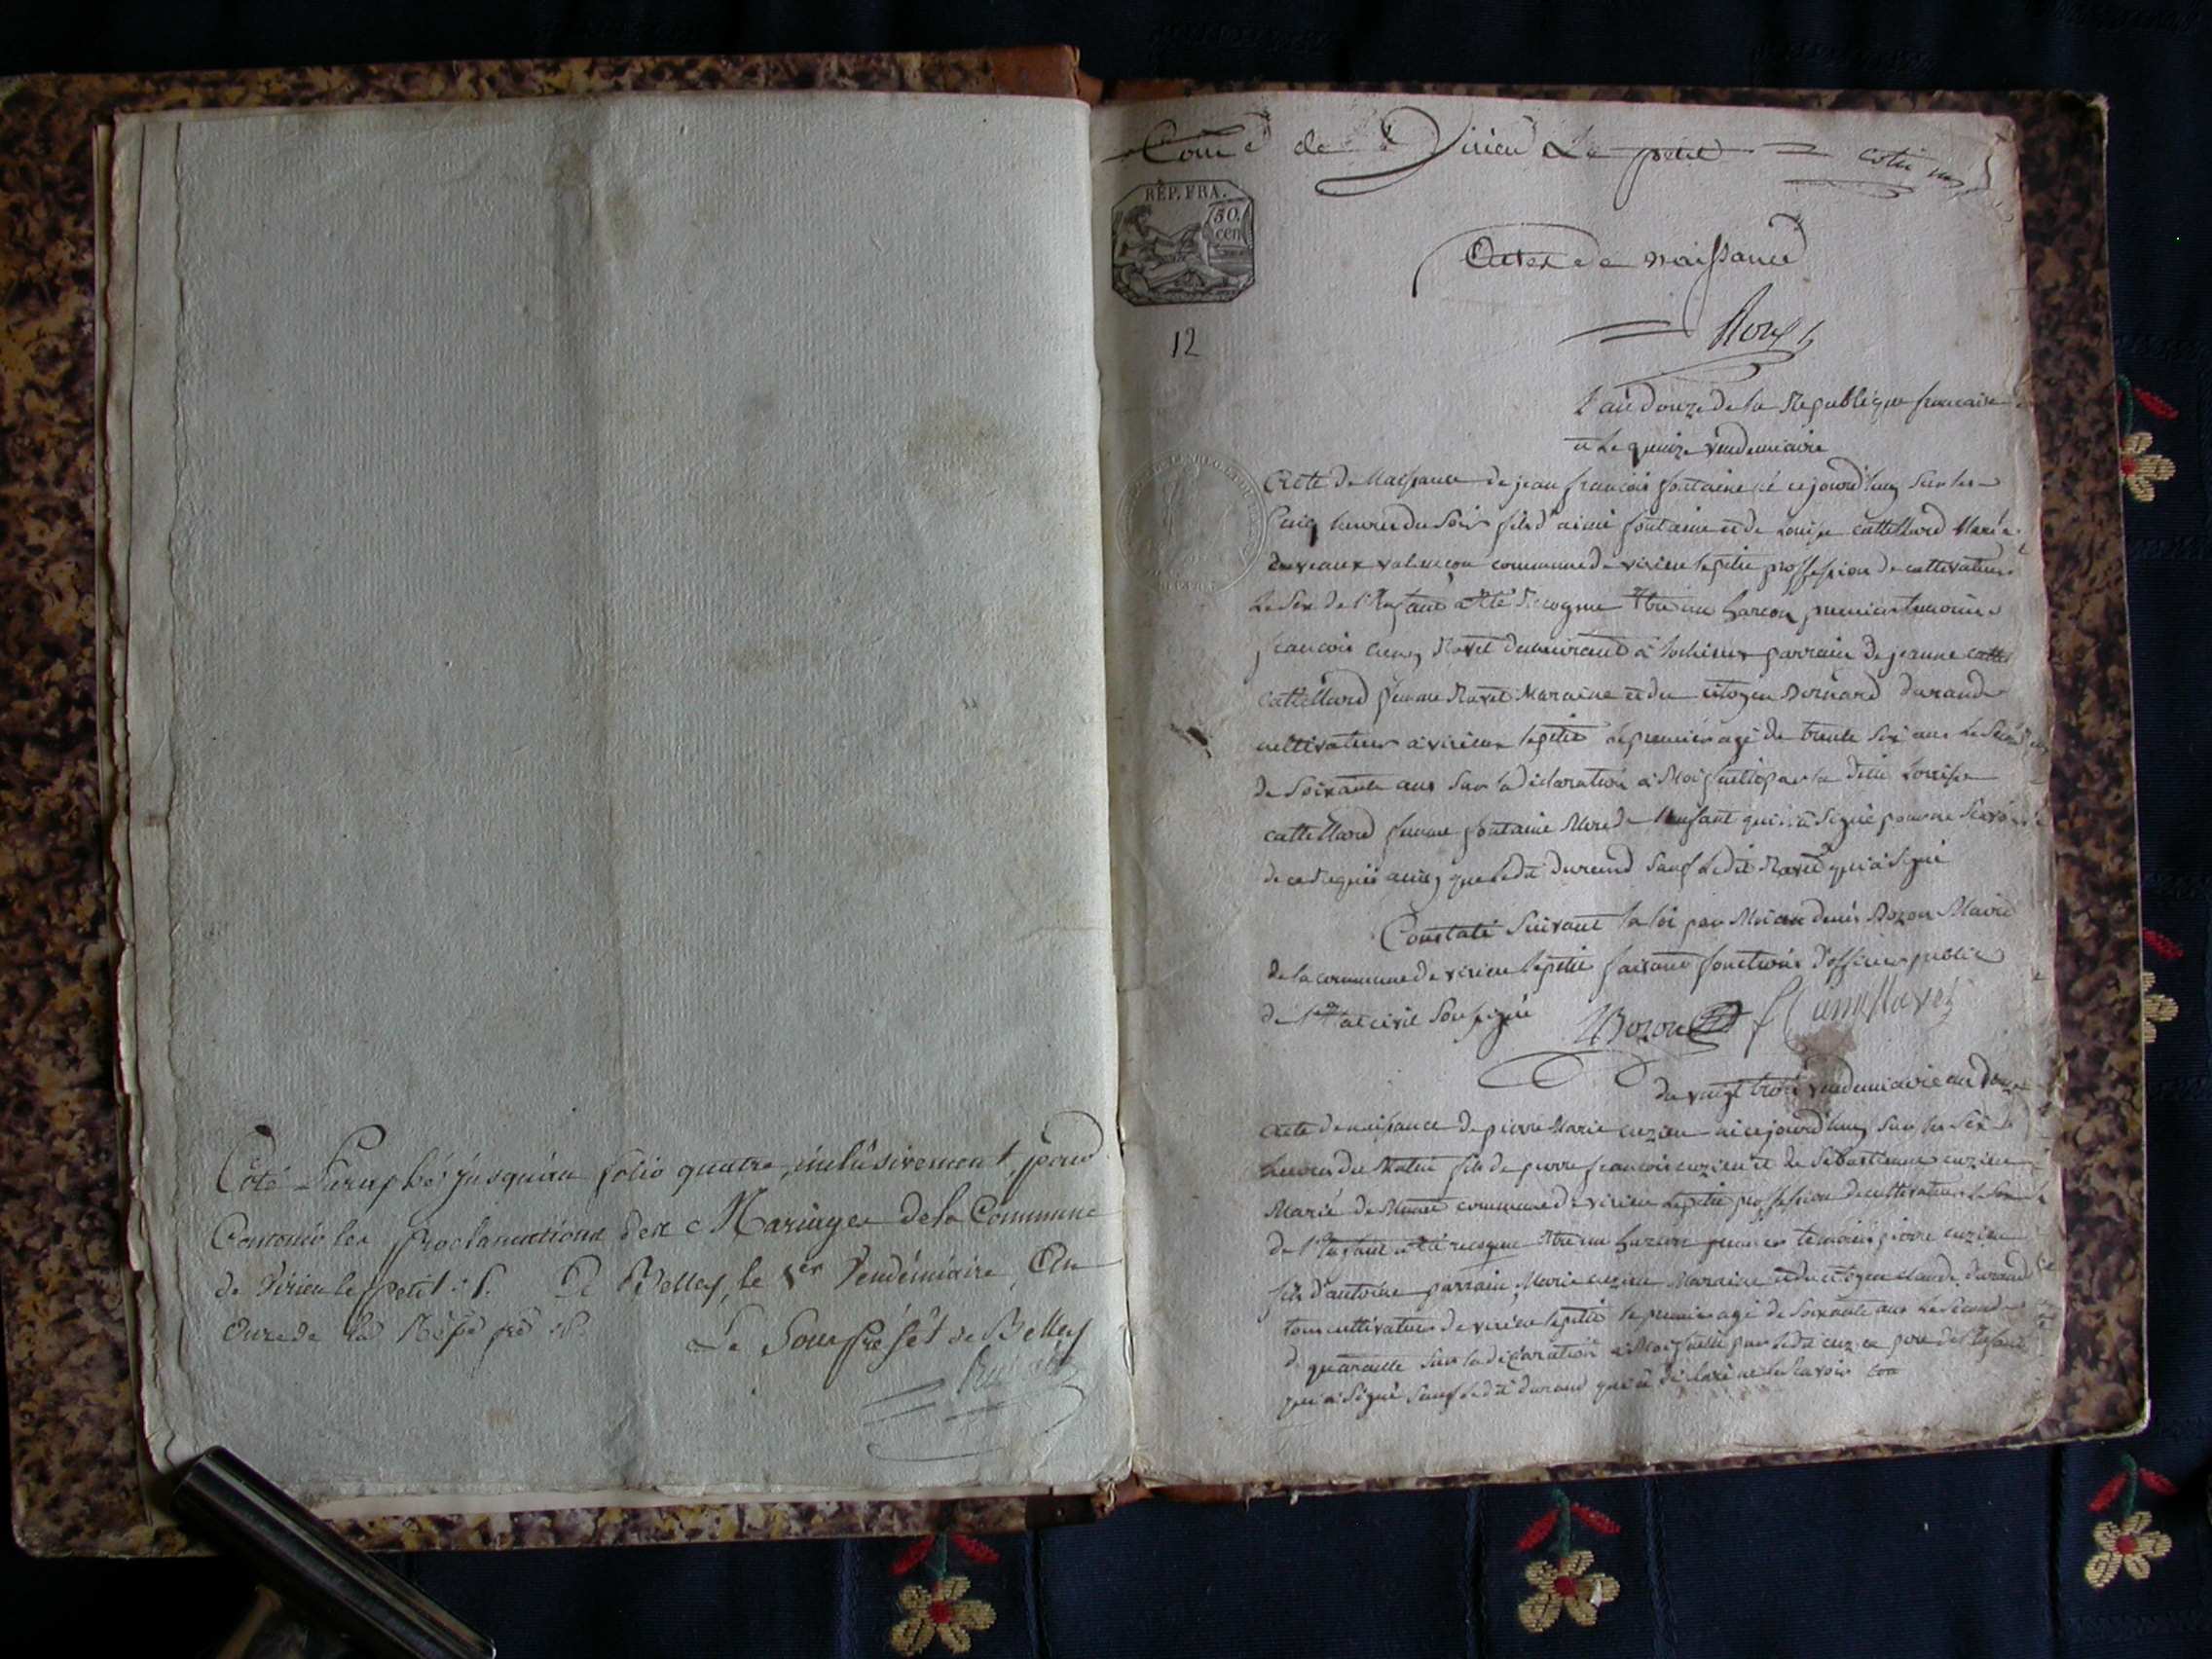 Coté Paraphé jusqu'au folio quatre inclusivement, pour
Contenir les Proclamations des Mariages de la Commune
de Virieu le petit
Belley, le 1er Vendémiaire, An
Onze de la
Le Sous Préfét de Belley
Com.e de Virieu Le petit
REP. FRA.
50.
cen
12
Actes de naissance
l'an douze de la Republique francaise
le quinze vendemiaire
Acte de Naissance de jean francois fontaine né cejourd'huy sur les
cinq heures du soir fils d'aimé fontaine et de Louise cattelland Mariés
commune de virieu lepetit proffession de cultivateur
Le Sex de l'Enfant a Eté Recognu Etre un garcon premier temoins
francois Ravet demeurant à lochieux parrain de jeanne
cattelland femme Ravet Maraine et du citoyen Bernard durand
cultivateur à virieux lepetit le premier agé de trente six ans Le Second
de Soixante ans Sur la Déclaration à Moi faitte par la ditte Louise
cattelland femme fontaine Mere de l'enfant qui n'a Signé pour ne Scavoir
de ce Requis ainsy que ledit durand Sauf Ledit Ravet qui à Signé
Constaté Suivant la loi par Moi denis Bozon Maire
de la commune de virieu lepetit faisant fonctions d'officier public
de l'Etat civil Soussigné
Bozon
du vingt trois vendemiaire an douze
Acte de naissance de pierre Marie cuzieu né cejourd'huy Sur les Six
heures du Matin fils de pierre francois cuzieu et de Sebastienne cuzieu
Marié de commune de virieu Lepetit proffession de cultivateur le Sex
de l'Enfant a Eté recognu Etre un garcon premier temoins pierre cuzieu
fils d'antoine parrain, Marie cuzieu Maraine et du citoyen Claude durand
tous cultivateurs de virieu lepetit le premier agé de Soixante ans Le Second
de quarante Sur la déclaration à Moi faitte par ledit cuzieu pere de l'Enfant
qui à Signé Sauf Ledit durand qui à déclaré ne le Scavoir